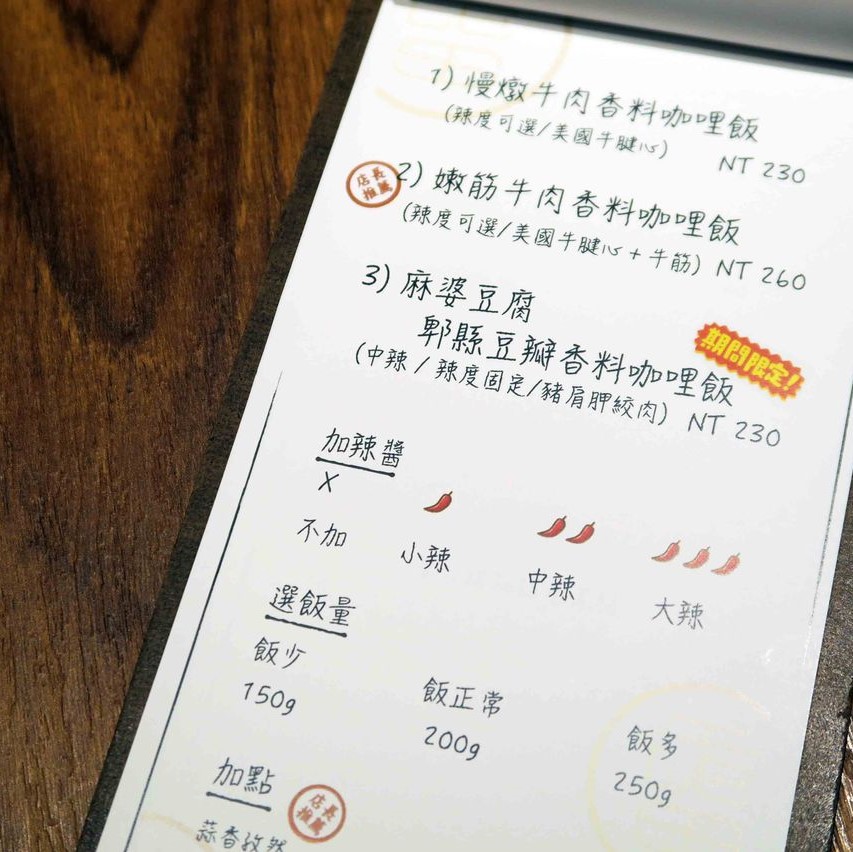 1) 慢燉牛肉香料咖哩飯
(辣度可選/美國牛腱心)
NT 230
店長推薦
2) 嫩筋牛肉香料咖哩飯
(辣度可選/美國牛腱心+牛筋) NT 260
3) 麻婆豆腐
郫縣豆瓣香料咖哩飯
期間限定!
(中辣/辣度固定/豬肩胛絞肉) NT 230
加辣醬
X
不加
小辣
中辣
大辣
選飯量
飯少
150g
飯正常
200g
飯多
250g
加點
店長推薦
蒜香孜然